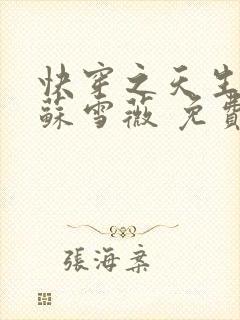 快穿之天生
蘇雪薇 免費
張海棄